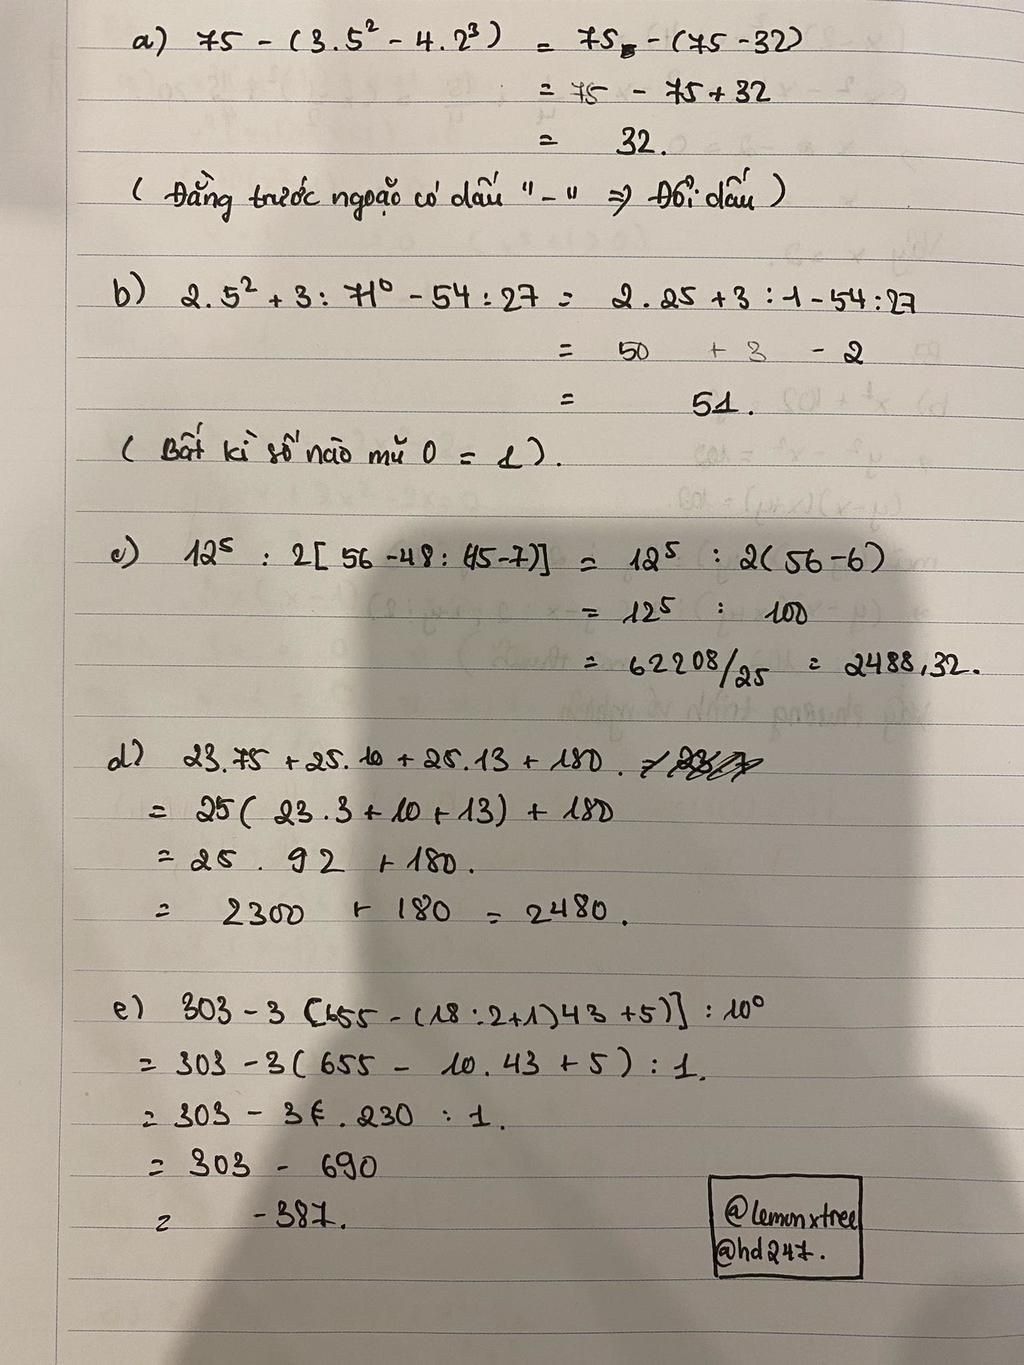 a) 75 - (3.5² - 4.2³) = 75 - (75 - 32)
= 75 - 75 + 32
= 32.
( Đằng trước ngoặc có dấu "-" => Đổi dấu )
b) 2.5² + 3 : 71⁰ - 54 : 27 = 2.25 + 3 : 1 - 54 : 27
= 50 + 3 - 2
= 51.
( Bất kì số nào mũ 0 = 1 ).
c) 12⁵ : 2[ 56 - 48 : (15 - 7)] = 12⁵ : 2( 56 - 6)
= 12⁵ : 100
= 62208/25 = 2488,32.
d) 23.75 + 25.10 + 25.13 + 180.
= 25( 23.3 + 10 + 13) + 180
= 25 . 92 + 180.
= 2300 + 180 = 2480.
e) 303 - 3 [655 - (18 : 2 + 1)43 + 5)] : 10⁰
= 303 - 3( 655 - 10.43 + 5) : 1.
= 303 - 3 . 230 : 1.
= 303 - 690
= -387.
@lemonxtree
@hd247.